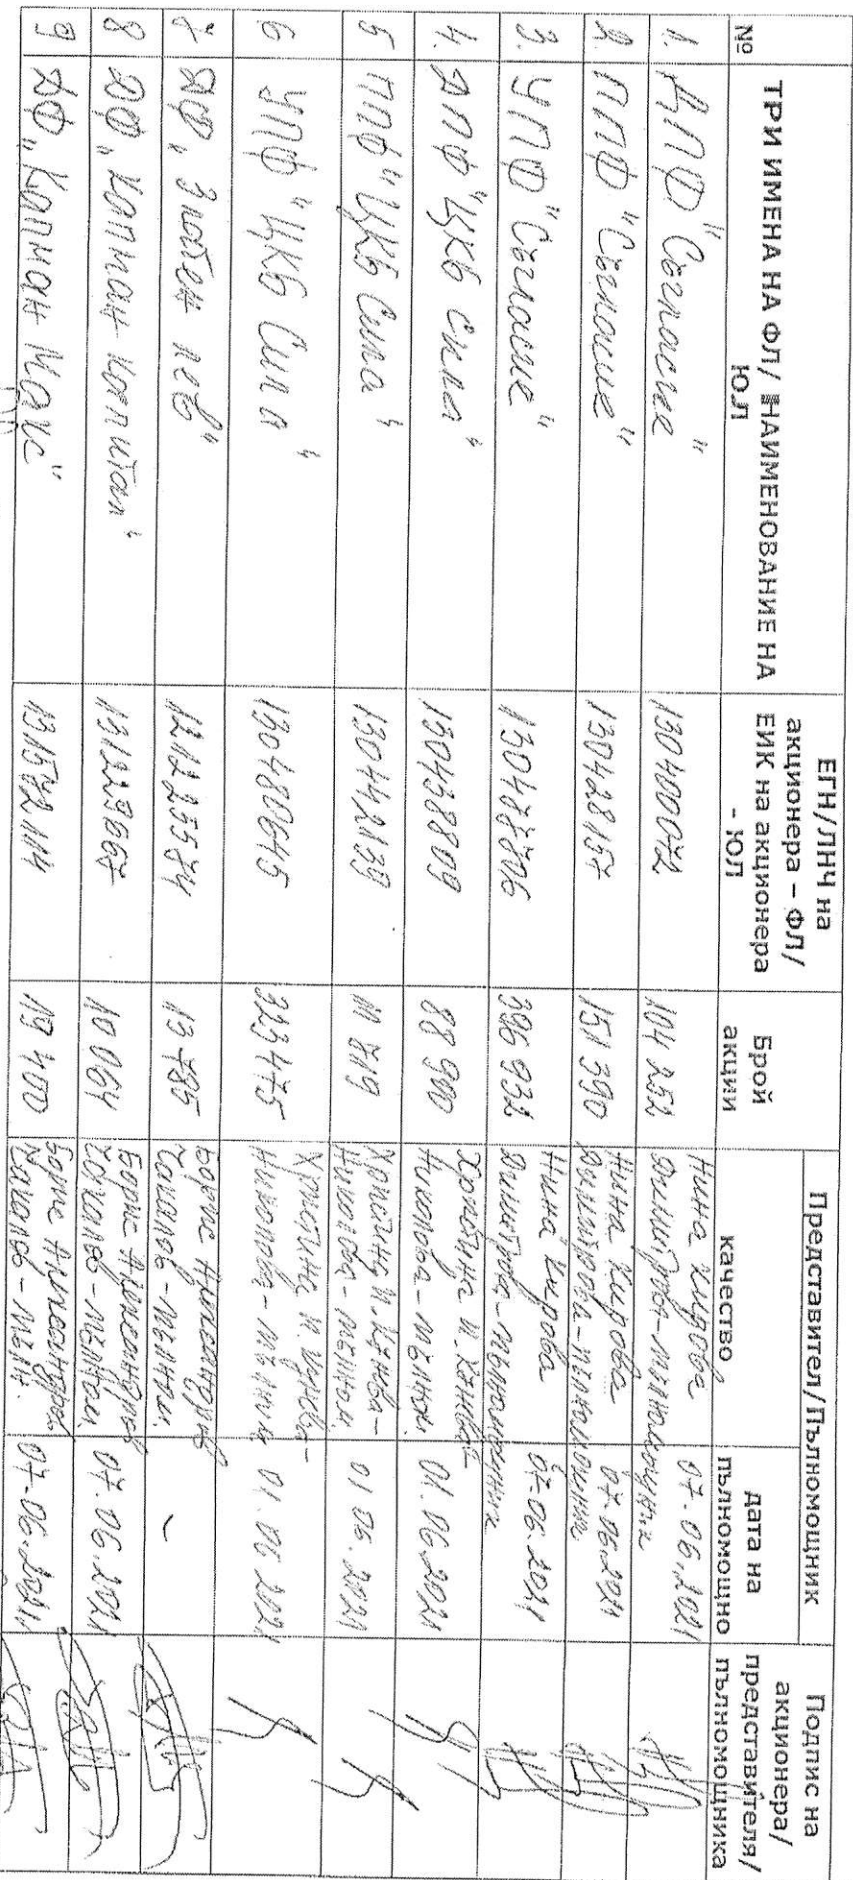 №
ТРИ ИМЕНА НА ФЛ/ НАИМЕНОВАНИЕ НА
ЮЛ
ЕГН/ЛНЧ на
акционера – ФЛ/
ЕИК на акционера
- ЮЛ
Брой
акции
Представител/Пълномощник
качество
дата на
пълномощно
Подпис на
акционера/
представителя/
пълномощника
1. ДПФ "Съгласие" 130400072 104 252 Нина Кирова 07.06.2021
Димитрова-пълномощник
2. ППФ "Съгласие" 130428157 151 390 Нина Кирова 07.06.2021
Димитрова-пълномощник
3. УПФ "Съгласие" 396 932 Нина Кирова 07.06.2021
Димитрова-пълномощник
4. ДПФ "ЦКБ Сила" 130438809 88 900 Христина
Николова-пълном. 01.06.2021
5 ППФ "ЦКБ Сила" 130442139 11 719 Христина
Николова-пълном. 01.06.2021
6 УПФ "ЦКБ Сила" 130480645 323 475 Христина
Николова-пълном. 01.06.2021
7 ДФ "Златен лев" 121223574 13 785 Борис Александров
пълном. -
8 ДФ "Капман Капитал" 131229667 10 064 Борис Александров
пълном. 07.06.2021
9 ДФ "Капман Макс" 131572114 19 400 Борис Александров
пълн. 07.06.2021